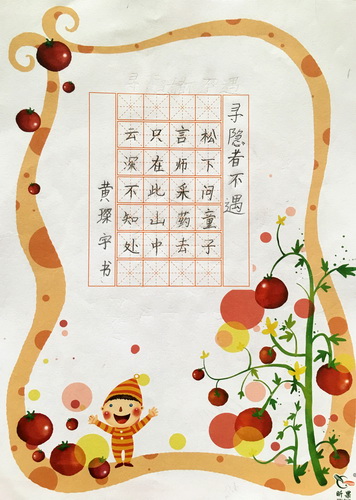 寻隐者不遇
松下问童子
言师采药去
只在此山中
云深不知处
黄琛宇书